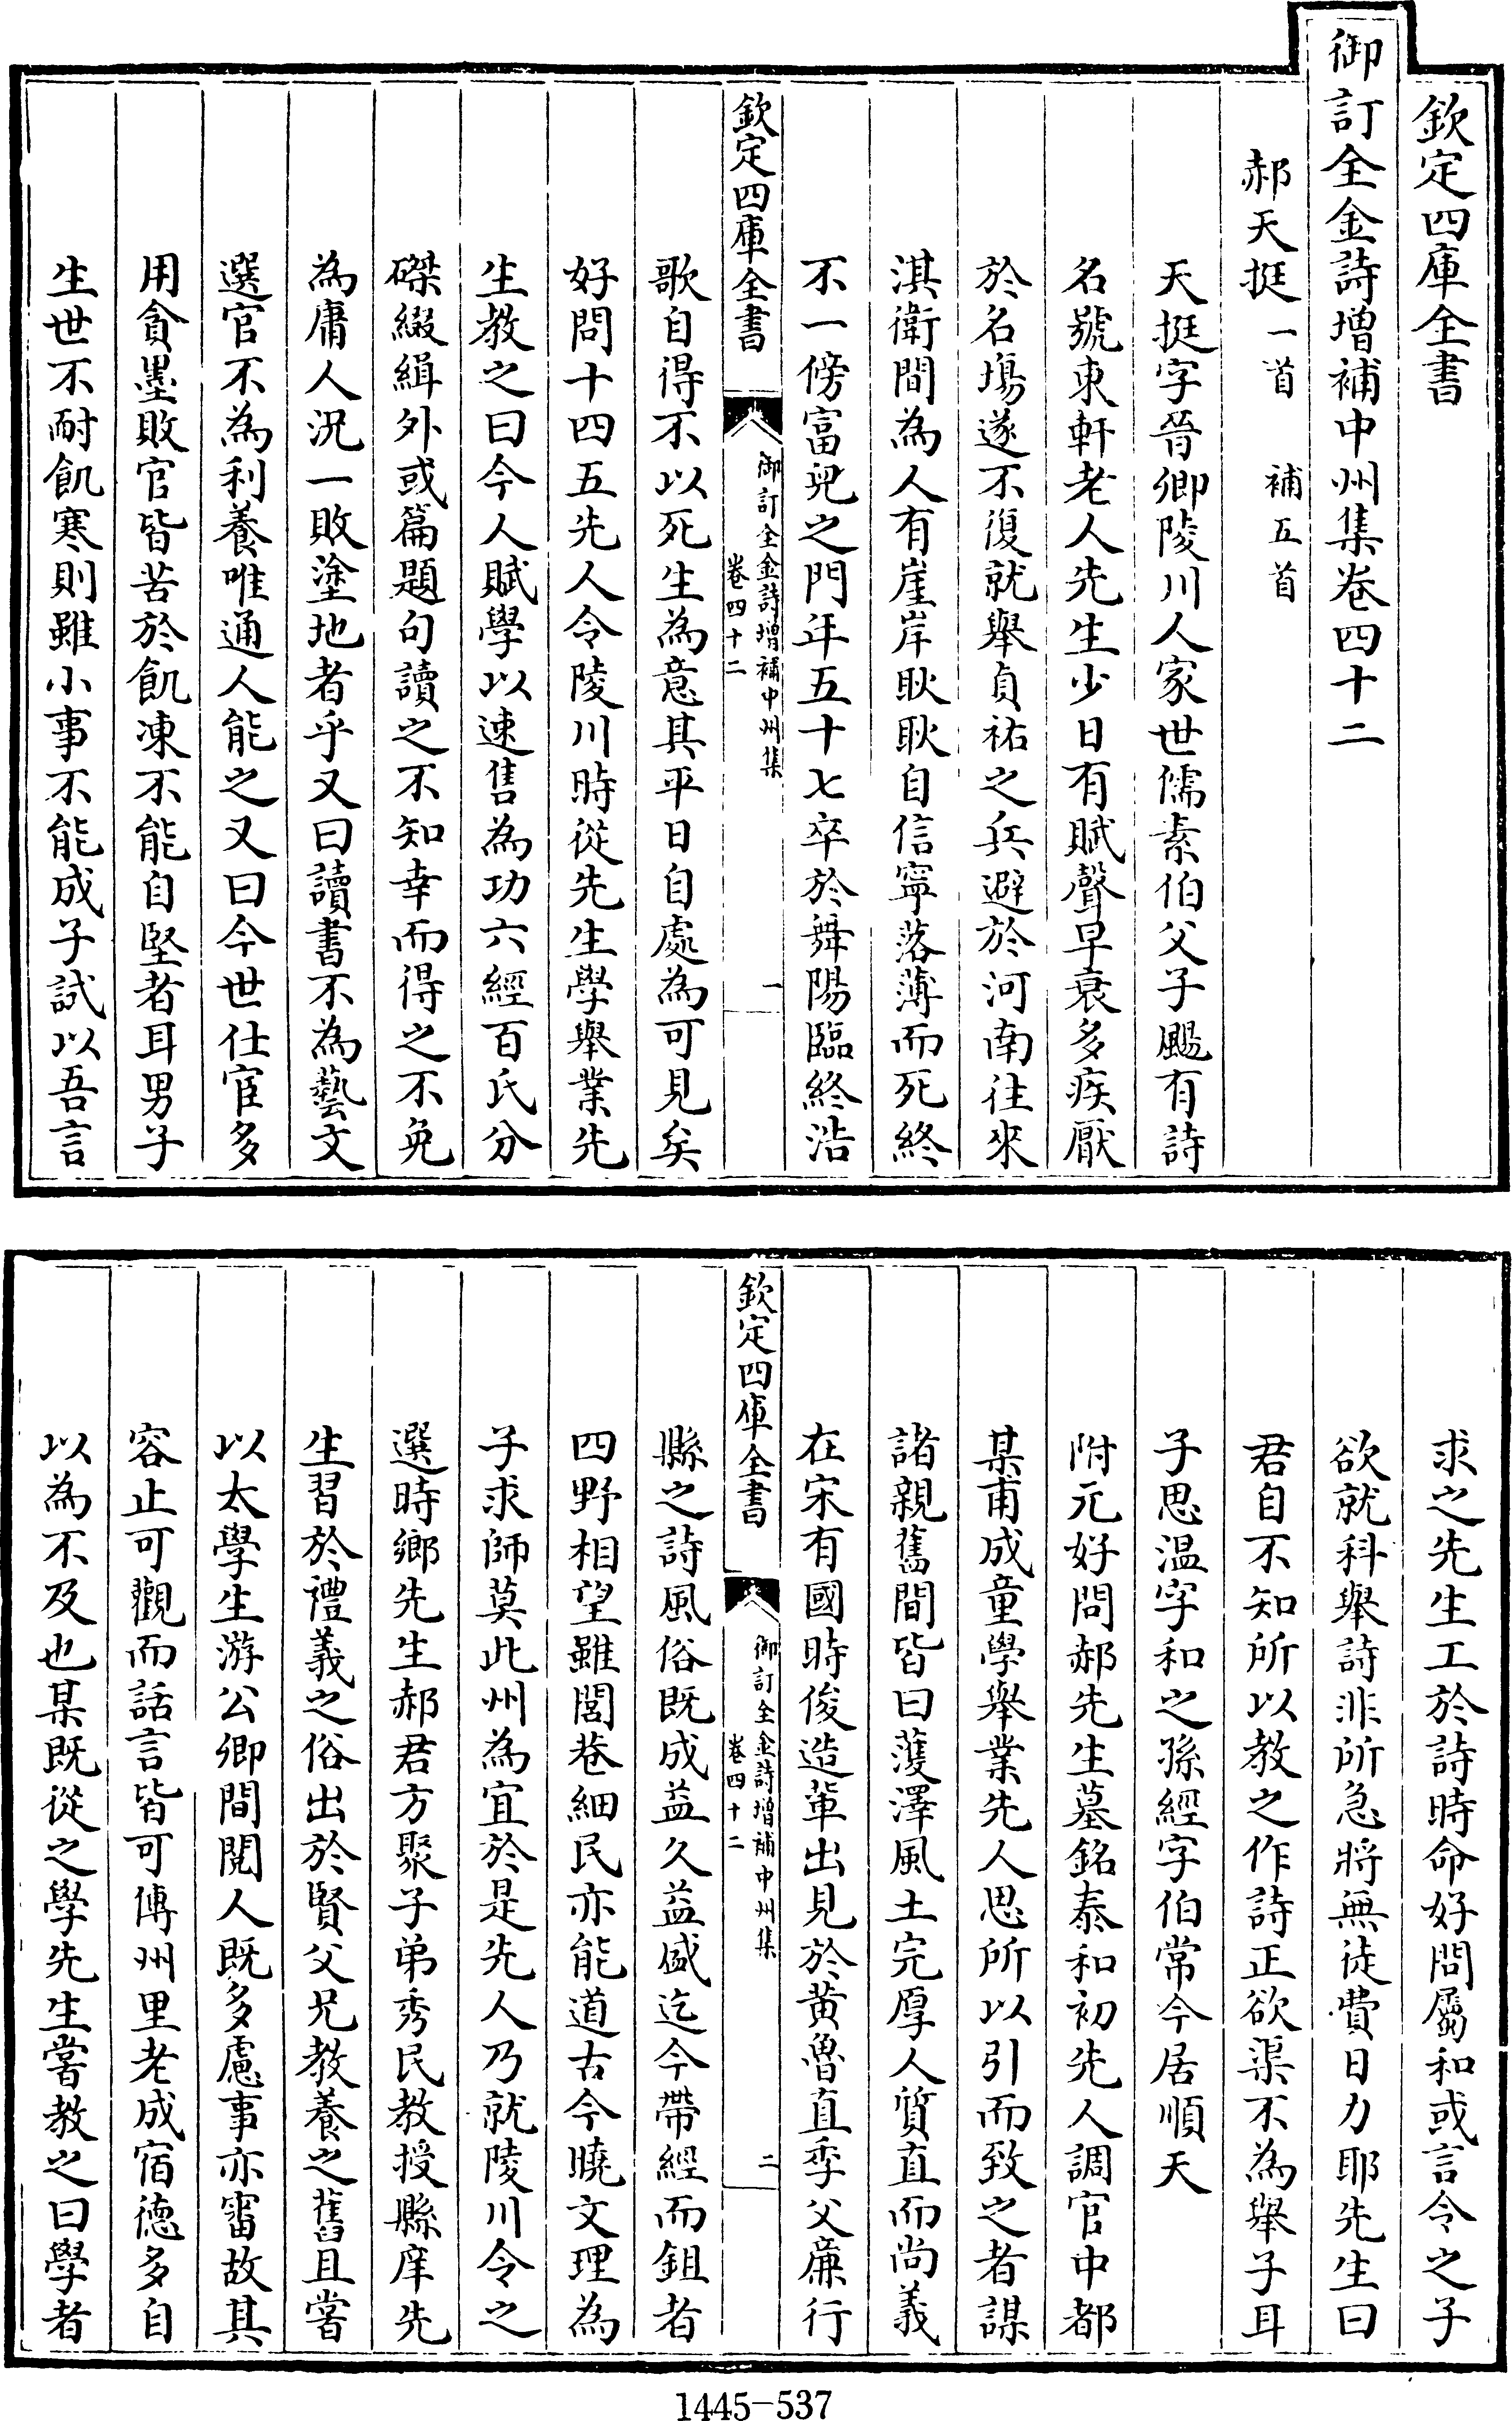 欽定四庫全書
御訂全金詩增補中州集卷四十二
郝天挺一首 補五首
天挺字晉卿陵川人家世儒素伯父子颺有詩
名號東軒老人先生少日有賦聲早衰多疾厭
於名塲遂不復就舉貞祐之兵避於河南往來
淇衛間為人有崖岸耿耿自信寧落薄而死終
不一傍富兒之門年五十七卒於舞陽臨終浩
欽定四庫全書
御訂全金詩增補中州集
卷四十二
一
歌自得不以死生為意其平日自處為可見矣
好問十四五先人令陵川時從先生學舉業先
生教之曰今人賦學以速售為功六經百氏分
磔綴緝外或篇題句讀之不知幸而得之不免
為庸人況一敗塗地者乎又曰讀書不為藝文
選官不為利養唯通人能之又曰今世仕宦多
用貪墨敗官皆苦於飢凍不能自堅者耳男子
生世不耐飢寒則雖小事不能成子試以吾言
求之先生工於詩時命好問屬和或言令之子
欲就科舉詩非所急將無徒費日力耶先生曰
君自不知所以教之作詩正欲渠不為舉子耳
子思温字和之孫經字伯常今居順天
附元好問郝先生墓銘泰和初先人調官中都
某甫成童學舉業先人思所以引而致之者謀
諸親舊間皆曰濩澤風土完厚人質直而尚義
在宋有國時俊造軰出見於黄魯直季父廉行
欽定四庫全書
御訂全金詩增補中州集
卷四十二
二
縣之詩風俗既成益久益盛迄今帶經而鉏者
四野相望雖閭巷細民亦能道古今曉文理為
子求師莫此州為宜於是先人乃就陵川令之
選時鄉先生郝君方聚子弟秀民教授縣庠先
生習於禮義之俗出於賢父兄教養之舊且嘗
以太學生游公卿間閱人既多慮事亦審故其
容止可觀而話言皆可傳州里老成宿德多自
以為不及也某既從之學先生嘗教之曰學者
1445-537